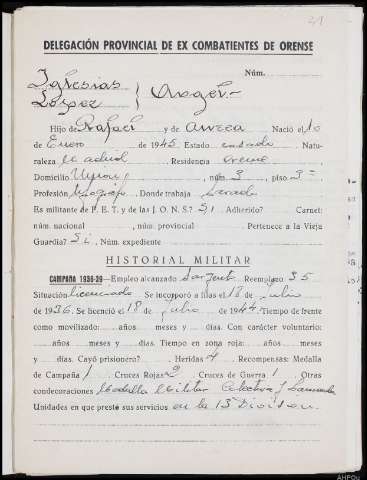 41
DELEGACIÓN PROVINCIAL DE EX COMBATIENTES DE ORENSE
Núm.
Iglesias
López } Angel.-
Hijo de Rafael y de Aurea Nació el 10
de Enero de 1945 Estado casado Natu-
raleza Residencia Orense
Domicilio núm 3 piso 3º
Profesión Donde trabaja
Es militante de F. E. T. y de las J. O. N. S.? Si Adherido? Carnet:
núm. nacional , núm. provincial . Pertenece a la Vieja
Guardia? Si. Núm. expediente
HISTORIAL MILITAR
CAMPAÑA 1936-39 - Empleo alcanzado Sargento Reemplazo 35
Situación licenciado Se incorporó a filas el 18 de Julio
de 1936. Se licenció el 18 de Julio de 1944 Tiempo de frente
como movilizado: años meses y días. Con carácter voluntario:
años meses y días. Tiempo en zona roja: años meses
y días. Cayó prisionero? Heridas 4 Recompensas: Medalla
de Campaña 1 Cruces Rojas 2 Cruces de Guerra 1 Otras
condecoraciones Medalla Militar Colectiva
Unidades en que prestó sus servicios en la 13 Division.
AHPOu